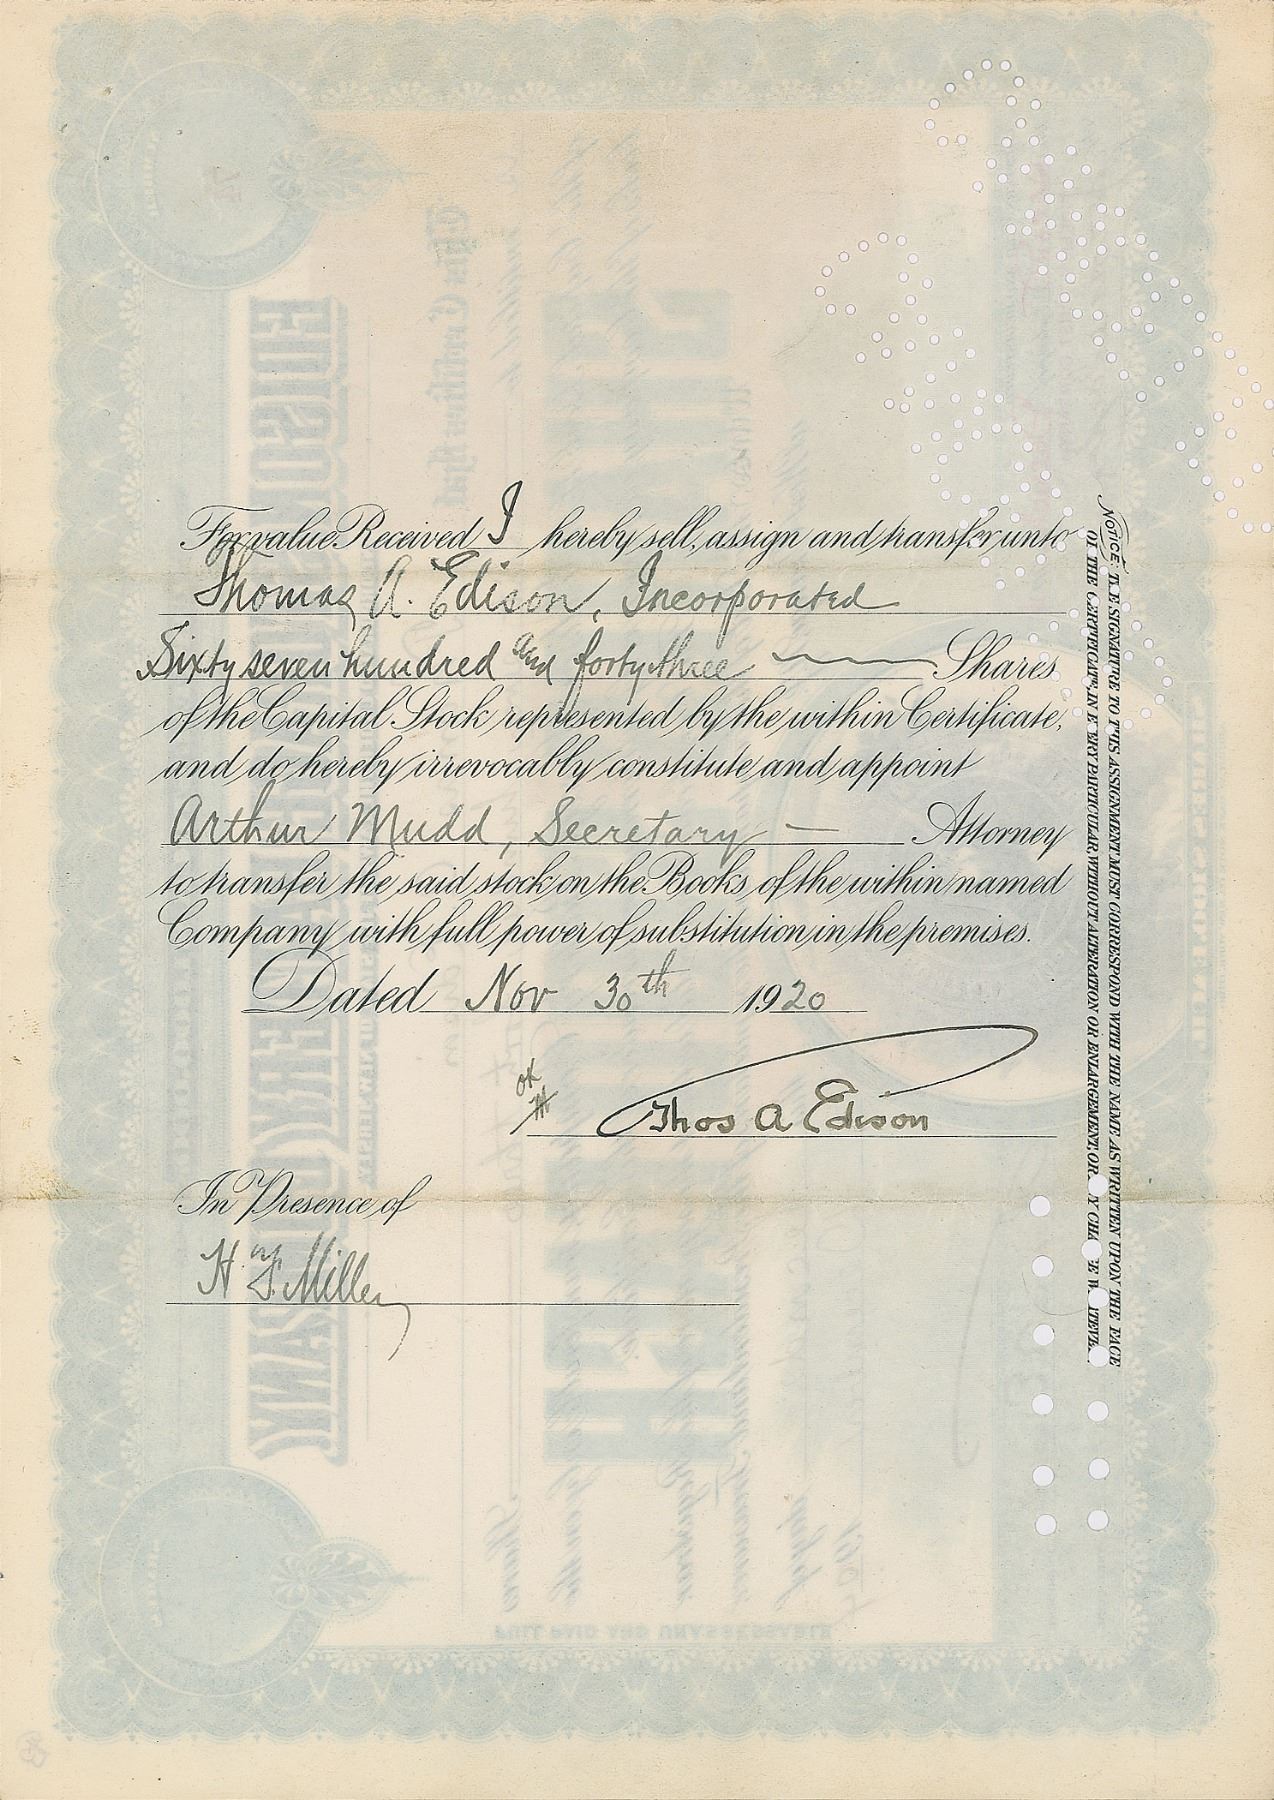 For value Received I hereby sell, assign and transfer unto
Thomas A. Edison, Incorporated
Sixty seven hundred and forty three Shares
of the Capital Stock represented by the within Certificate,
and do hereby irrevocably constitute and appoint
Arthur Mudd, Secretary — Attorney
to transfer the said stock on the Books of the within named
Company with full power of substitution in the premises.
Dated Nov 30th 1920
OK
Thos A Edison
In Presence of
H. F. Miller
NOTICE. THE SIGNATURE TO THIS ASSIGNMENT MUST CORRESPOND WITH THE NAME AS WRITTEN UPON THE FACE
OF THE CERTIFICATE, IN EVERY PARTICULAR, WITHOUT ALTERATION OR ENLARGEMENT, OR ANY CHANGE WHATEVER.
EDISON
COMPANY
FULL PAID AND UNASSESSABLE